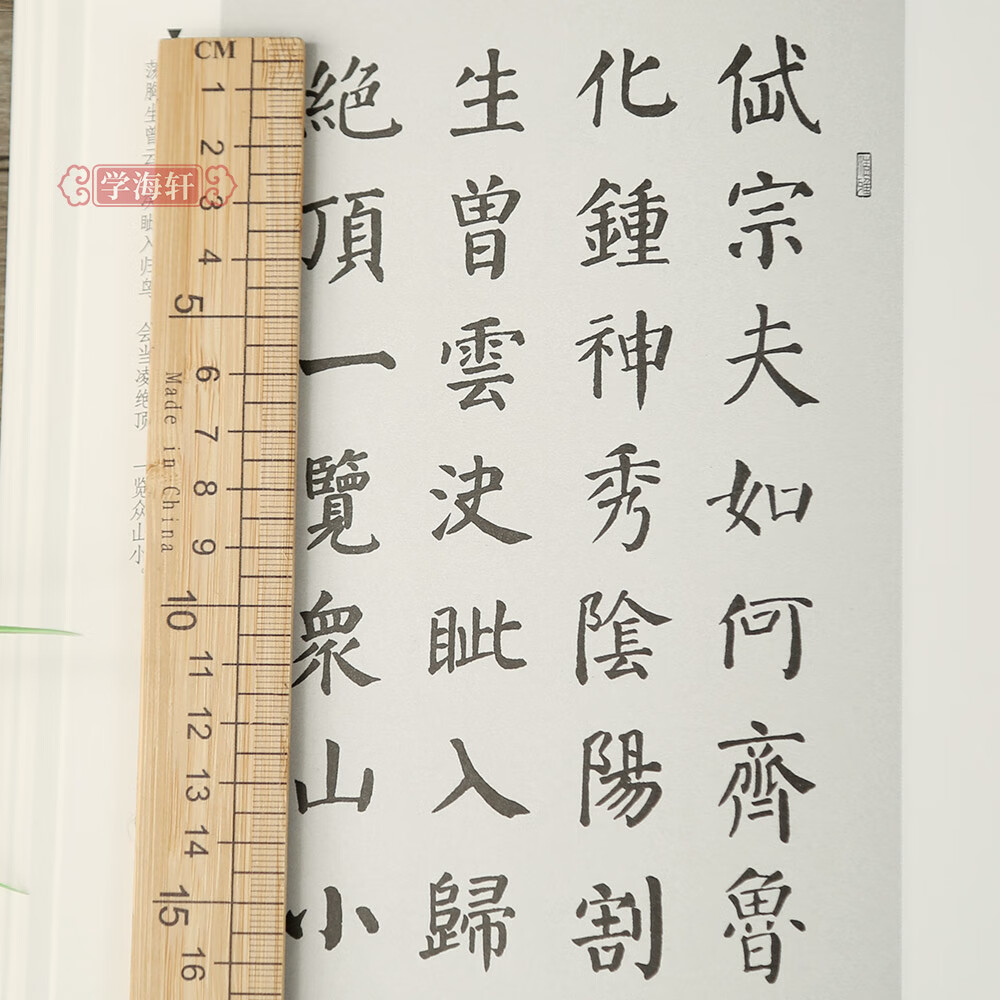 岱宗夫如何齊魯
化鍾神秀陰陽割
生曾雲決眦入歸
絕頂一覽衆山小
荡胸生曾云 眦入归鸟 会当凌绝顶 一览众山小。
学海轩
CM
1
2
3
4
5
6
7
8
9
10
11
12
13
14
15
16
Made in China